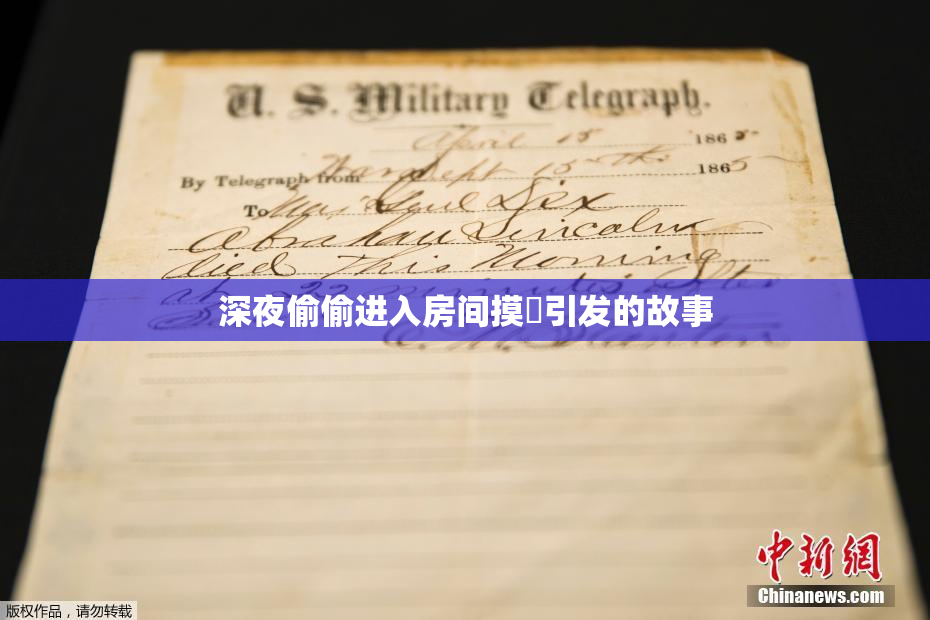 U. S. Military Telegraph.
April 15 1865
By Telegraph from War Dept 15th 1865
To Maj Genl Dix
Abraham Lincoln
died This Morning
at 22 minutes after
深夜偷偷进入房间摸▯引发的故事
E. M. Stanton
中新网
Chinanews.com
版权作品，请勿转载